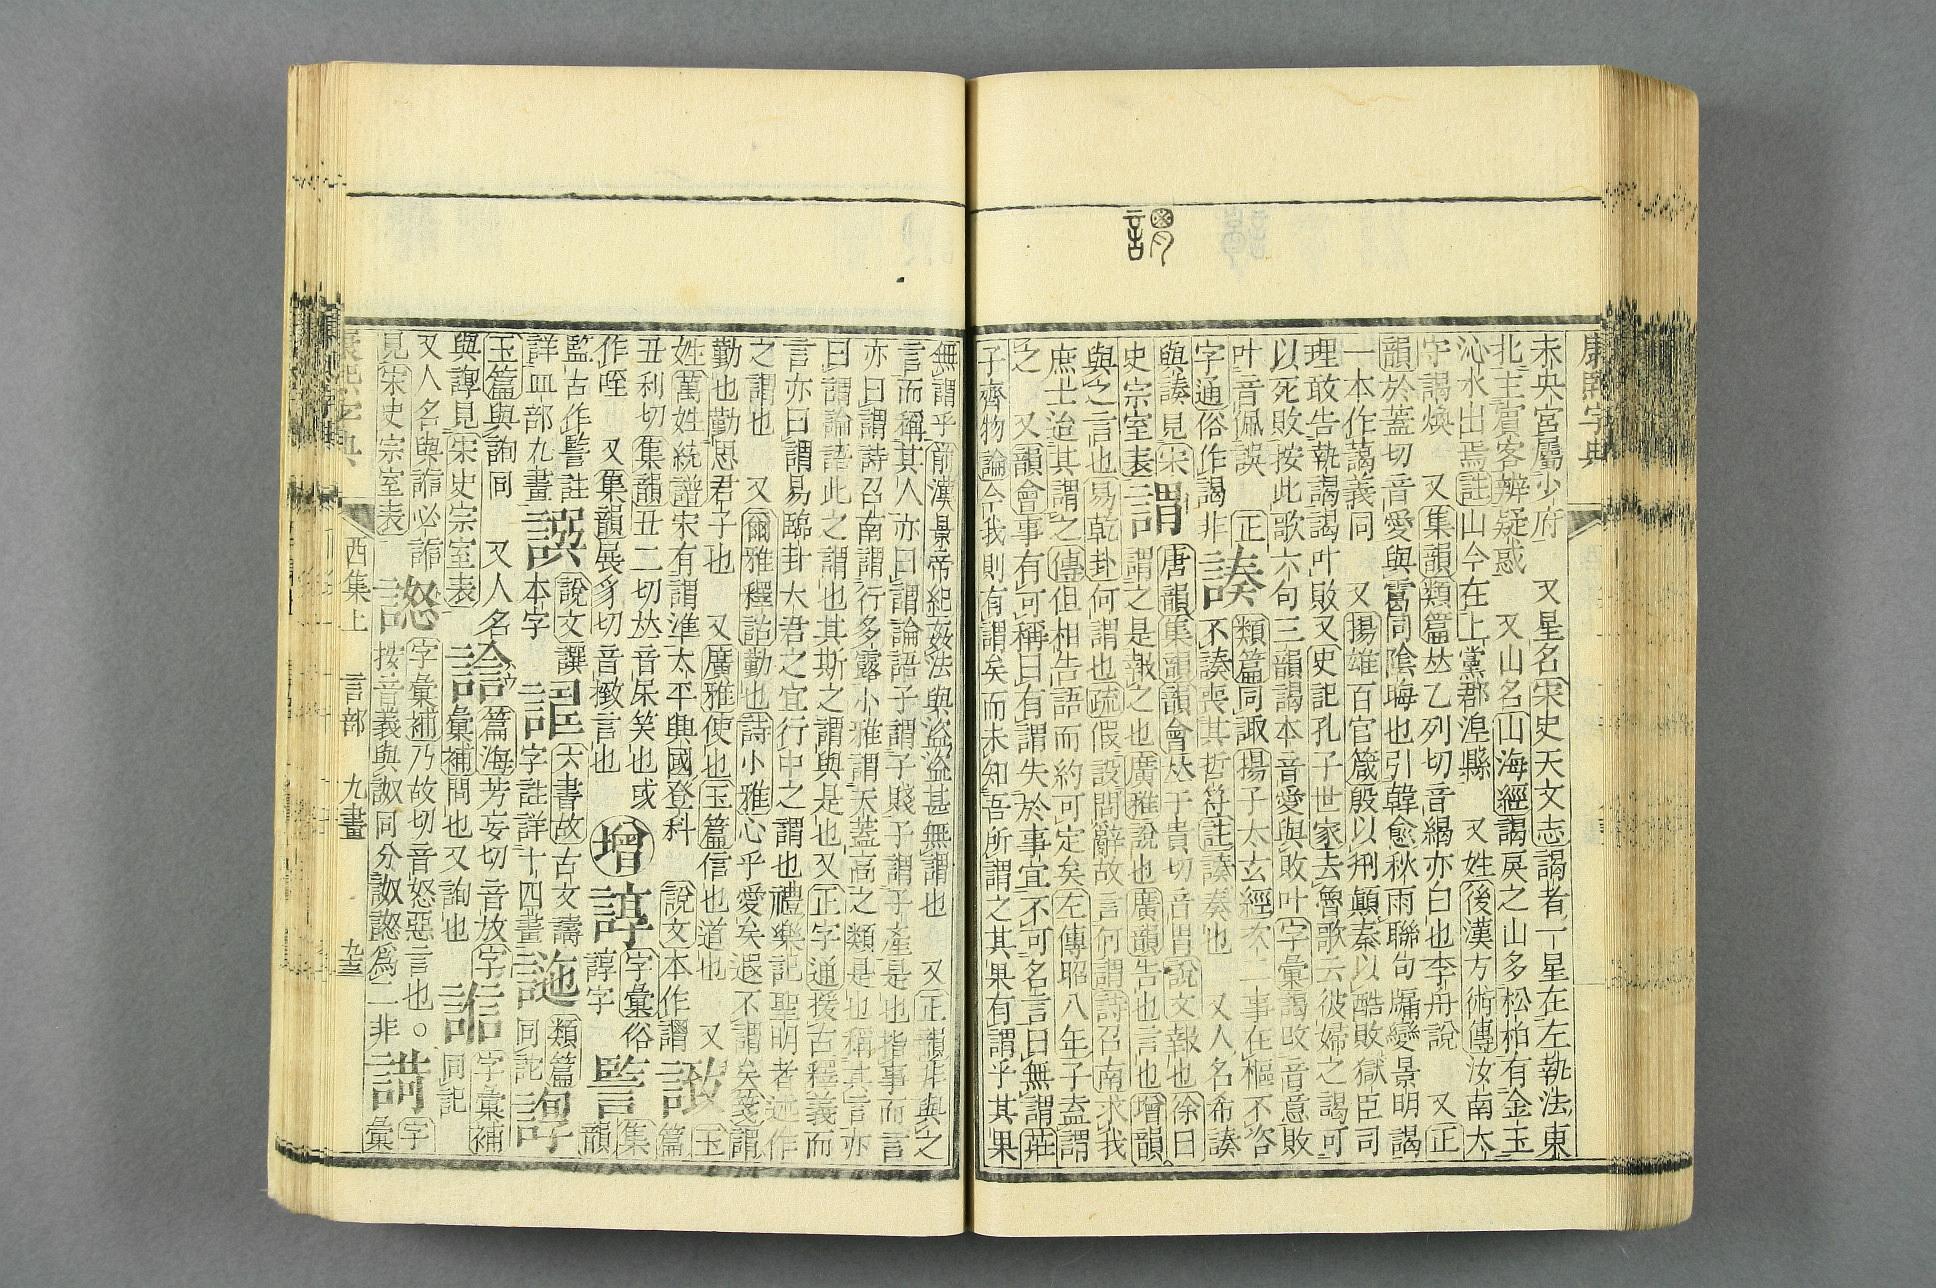 謂
康熙字典
未央宮屬少府　又星名宋史天文志謁者一星在左執法東
北主賓客辨疑惑　又山名山海經謁戾之山多松柏有金玉
沁水出焉註山今在上黨郡涅縣　又姓後漢方術傳汝南太
守謁煥　又集韻類篇𠀤乙列切音緆亦白也李舟說　又正
韻於蓋切音愛與靄同陰晦也引韓愈秋雨聯句牖變景明謁
一本作藹義同　又揚雄百官箴殷以刑顛秦以酷敗獄臣司
理敢告執謁謁叶敗又史記孔子世家去魯歌云彼婦之謁可
以死敗按此歌六句三韻謁本音愛與敗叶字彙謁改音意敗
叶音佩誤　正
字通俗作謁非
諫
類篇同諏揚子太玄經次二事在樞不咨
不諫喪其哲符註諫奏也　又人名希諫
與諫見宋
史宗室表
謂
唐韻集韻韻會𠀤于貴切音胃說文報也徐曰
謂之是報之也廣雅說也廣韻告也言也增韻
與之言也易乾卦何謂也疏假設問辭故言何謂詩召南求我
庶士迨其謂之傳但相告語而約可定矣左傳昭八年子盍謂
之　又韻會事有可稱曰有謂失於事宜不可名言曰無謂莊
子齊物論今我則有謂矣而未知吾所謂之其果有謂乎其果
無謂乎前漢景帝紀姦法與盜盜甚無謂也　又正韻非與之
言而稱其人亦曰謂論語子謂子賤子謂子產是也指事而言
亦曰謂詩召南謂行多露小雅謂天蓋高之類是也稱其言亦
曰謂論語此之謂也其斯之謂與是也又正字通援古釋義而
言亦曰謂易臨卦大君之宜行中之謂也禮樂記聖明者述作
之謂也　又爾雅釋詁勤也詩小雅心乎愛矣遐不謂矣箋謂
勤也勤思君子也　又廣雅使也玉篇信也道也　又
姓萬姓統譜宋有謂準太平興國登科　說文本作䛻
詖
玉
篇
丑利切集韻丑二切𠀤音㞒笑也或
作咥　又集韻展豸切音㨖言也
增
諄
字彙俗
諄字
謷
集
韻
監古作謷註
詳皿部九畫
諁
說文譔
本字
䛭
六書故古文譸
字註詳十四畫
𧩹
類篇
同詑
䛬
玉篇與詢同　又人名
與諄見宋史宗室表
篇海芳妄切音放字
彙補問也又詢也
字彙補
同記
又人名與䛬必䛬
見宋史宗室表
字彙補乃故切音怒惡言也。
按音義與詉同分詉䜮爲二非
講
字
彙
酉集上　言部　九畫　九三
康熙字典